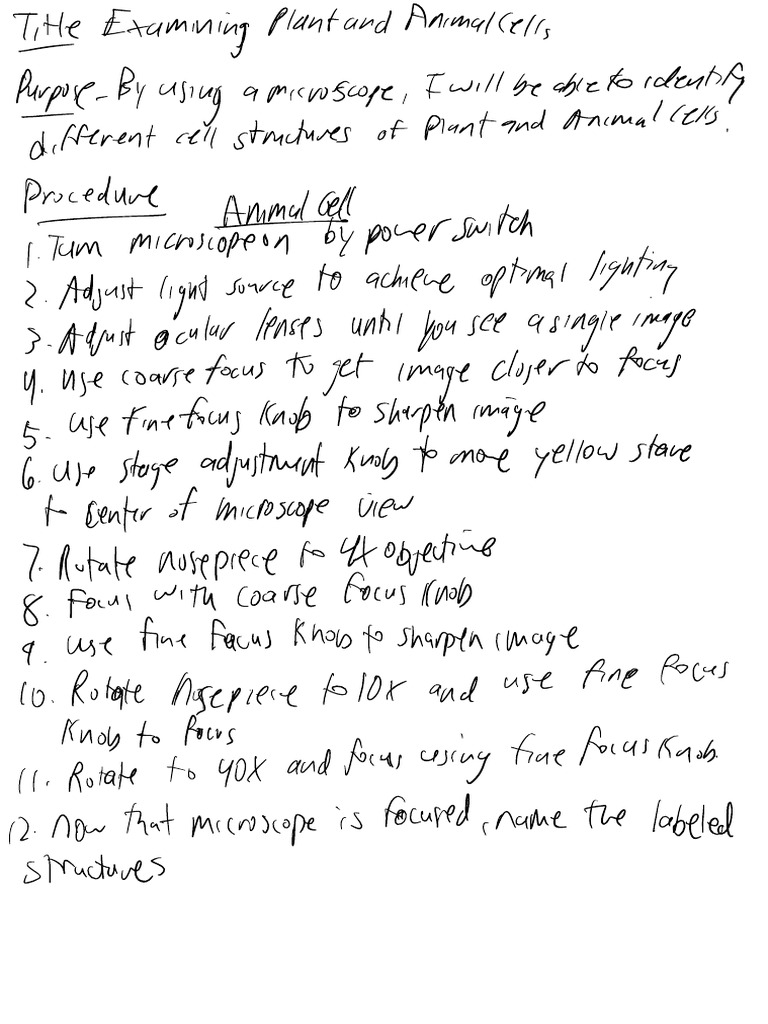 Title Examining Plant and Animal Cells
Purpose - By using a microscope, I will be able to identify
different cell structures of Plant and Animal Cells.
Procedure
Animal Cell
1. Turn microscope on by power switch
2. Adjust light source to achieve optimal lighting
3. Adjust ocular lenses until you see a single image
4. Use coarse focus to get image closer to focus
5. Use fine focus knob to sharpen image
6. Use stage adjustment knob to move yellow square
to center of microscope view
7. Rotate nosepiece to 4X objective
8. Focus with coarse focus knob
9. Use fine focus knob to sharpen image
10. Rotate Nosepiece to 10X and use fine focus
knob to focus
11. Rotate to 40X and focus using fine focus knob.
12. Now that microscope is focused, name the labeled
structures